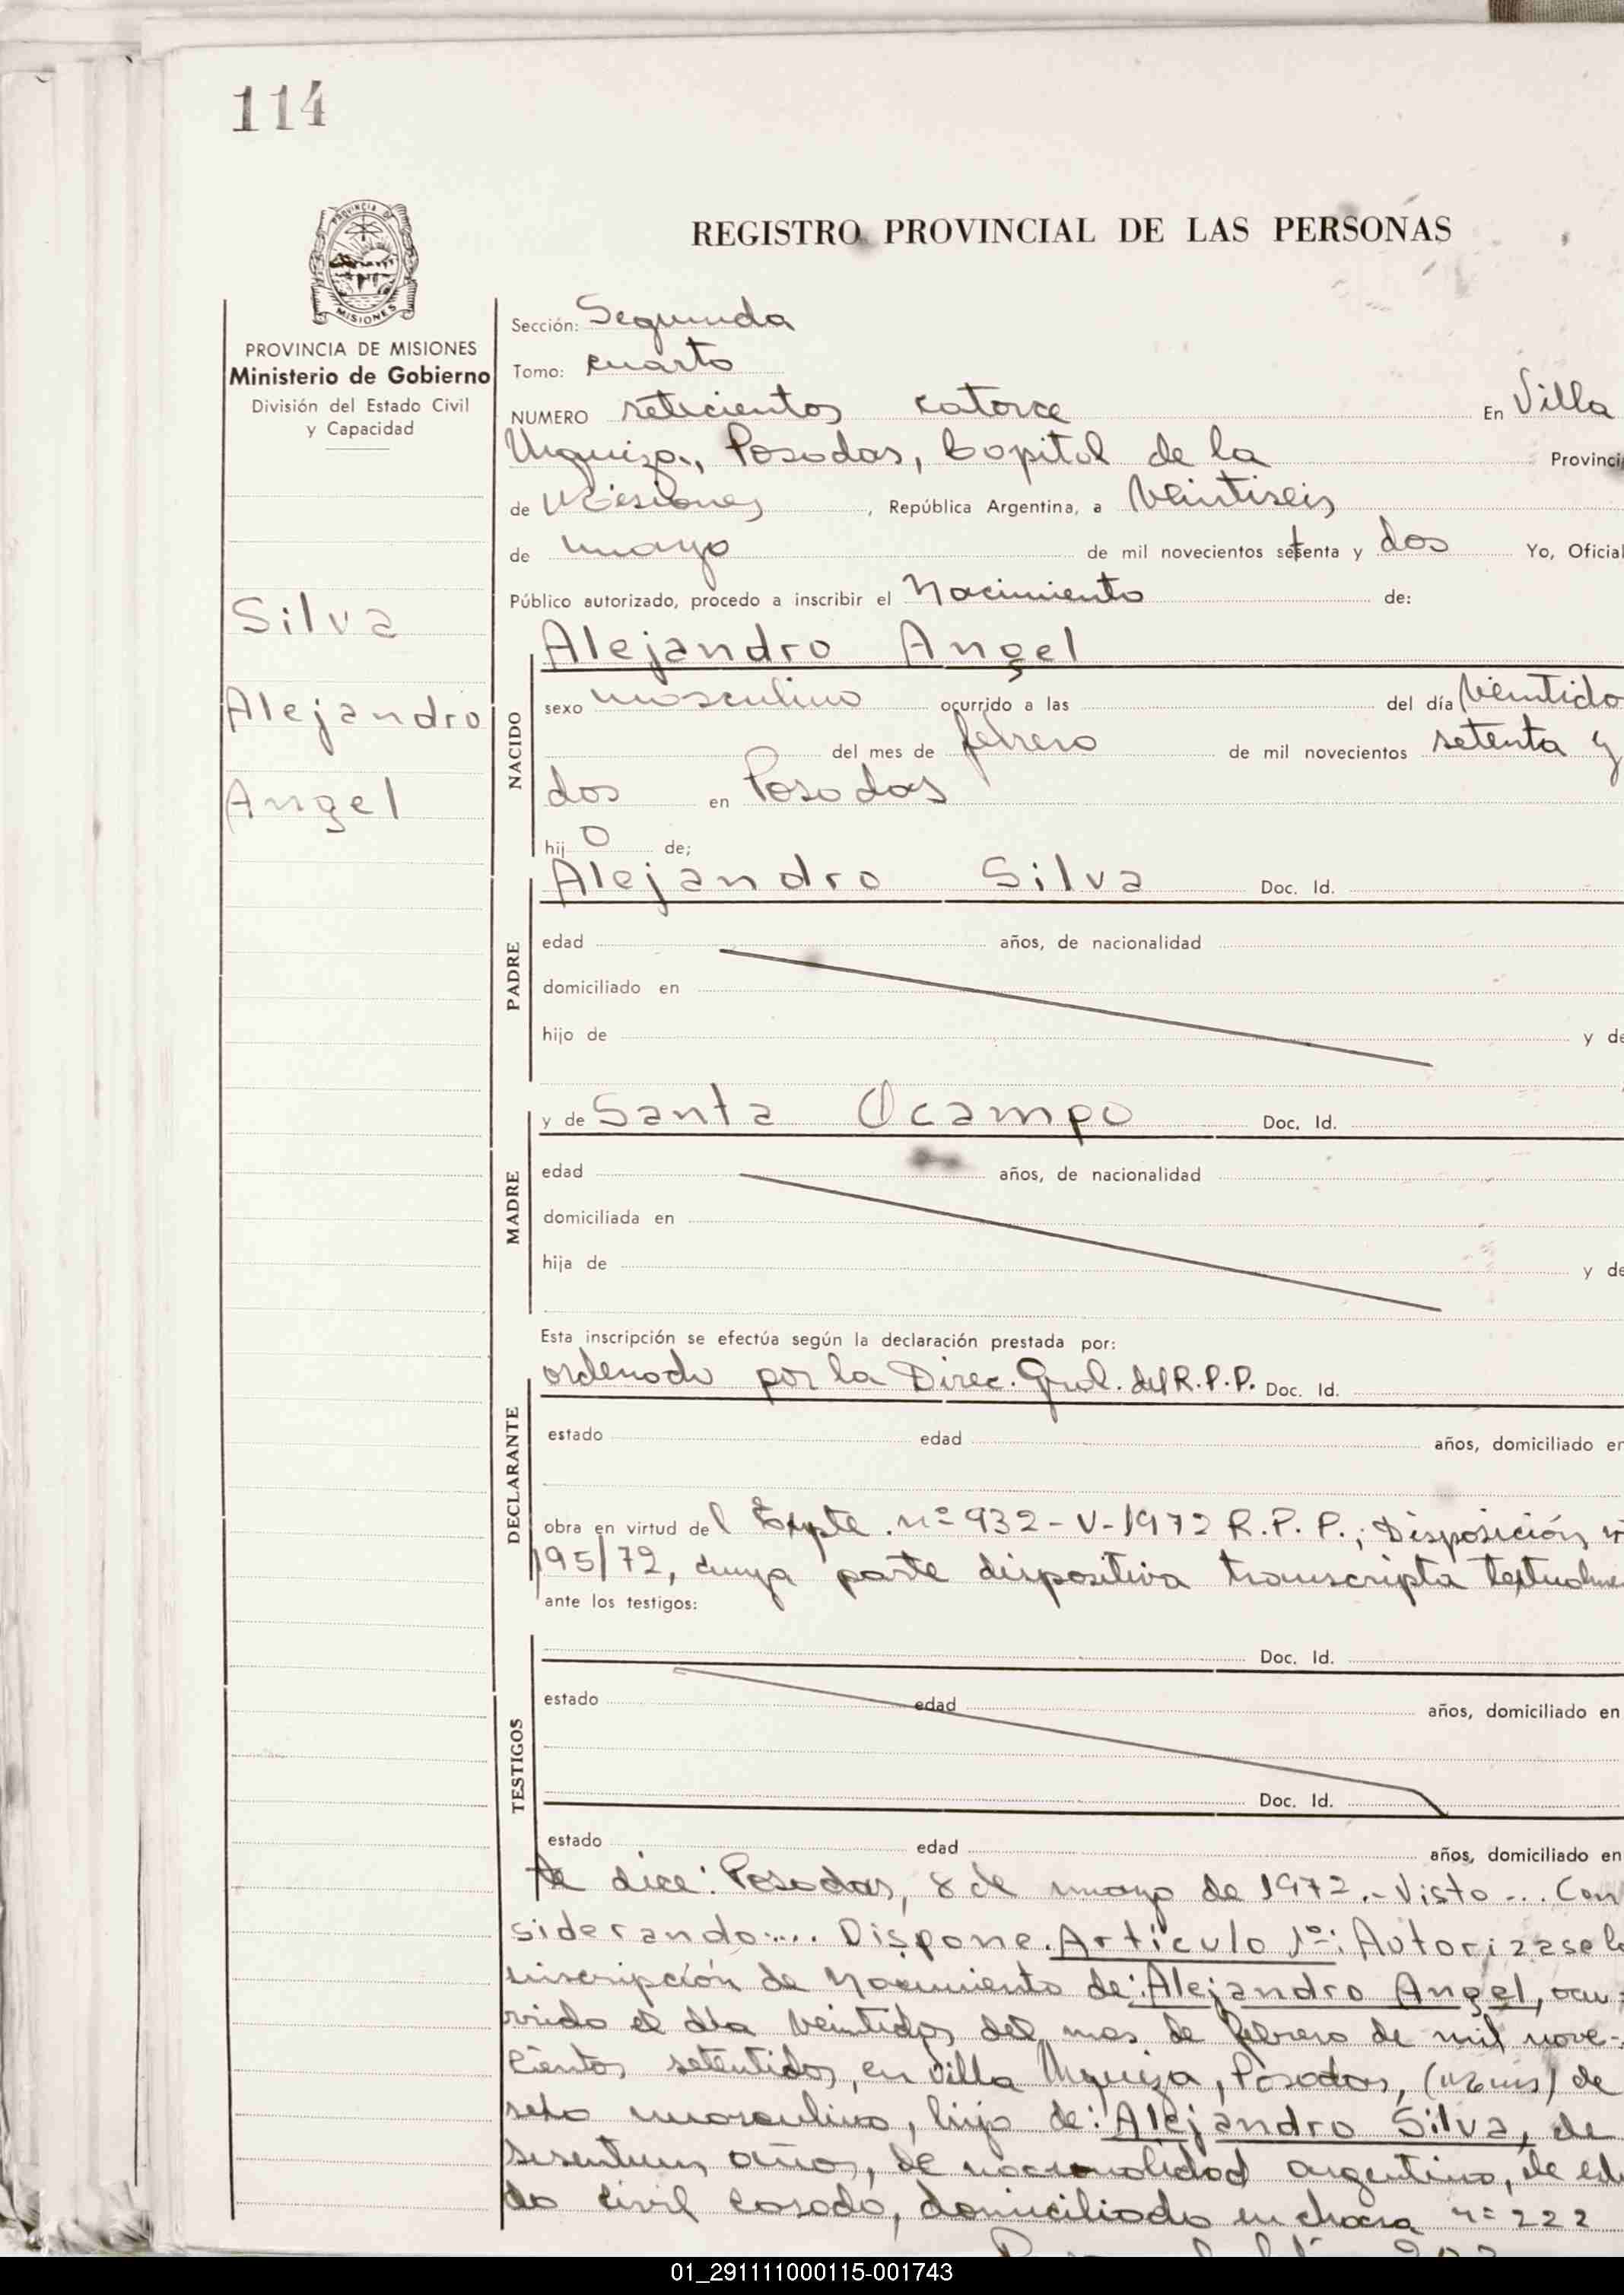 114
PROVINCIA DE
MISIONES
REGISTRO PROVINCIAL DE LAS PERSONAS
PROVINCIA DE MISIONES
Ministerio de Gobierno
División del Estado Civil
y Capacidad
Silva
Alejandro
Angel
Sección: Segunda
Tomo: cuarto
NUMERO setecientos catorce En Villa
Urquiza, Posadas, Capital de la Provinci
de Misiones, República Argentina, a Veintiseis
de mayo de mil novecientos setenta y dos Yo, Oficial
Público autorizado, procedo a inscribir el Nacimiento de:
Alejandro Angel
NACIDO
sexo masculino ocurrido a las del día Veintido
del mes de febrero de mil novecientos setenta y
dos en Posadas
hij o de;
Alejandro Silva Doc. Id.
PADRE
edad años, de nacionalidad
domiciliado en
hijo de y de
y de Santa Ocampo Doc. Id.
MADRE
edad años, de nacionalidad
domiciliada en
hija de y de
Esta inscripción se efectúa según la declaración prestada por:
ordenado por la Direc. Gral. del R.P.P. Doc. Id.
DECLARANTE
estado edad años, domiciliado en
obra en virtud del Expte. nº 932-V-1972 R.P.P.; Disposición nº
195/72, cuya parte dispositiva transcripta textualmen
ante los testigos:
Doc. Id.
TESTIGOS
estado edad años, domiciliado en
Doc. Id.
estado edad años, domiciliado en
te dice: Posadas, 8 de mayo de 1972.- Visto... Con
siderando:... Dispone. Artículo 1º: Autorizase la
inscripción de Nacimiento de: Alejandro Angel, ocu-
rrido el día veintidos del mes de febrero de mil nove-
cientos setentidos, en Villa Urquiza, Posadas, de
sexo masculino, hijo de: Alejandro Silva, de
sesentiun años, de nacionalidad argentino, de esta
do civil casado, domiciliado en chacra nº 222
01_291111000115-001743